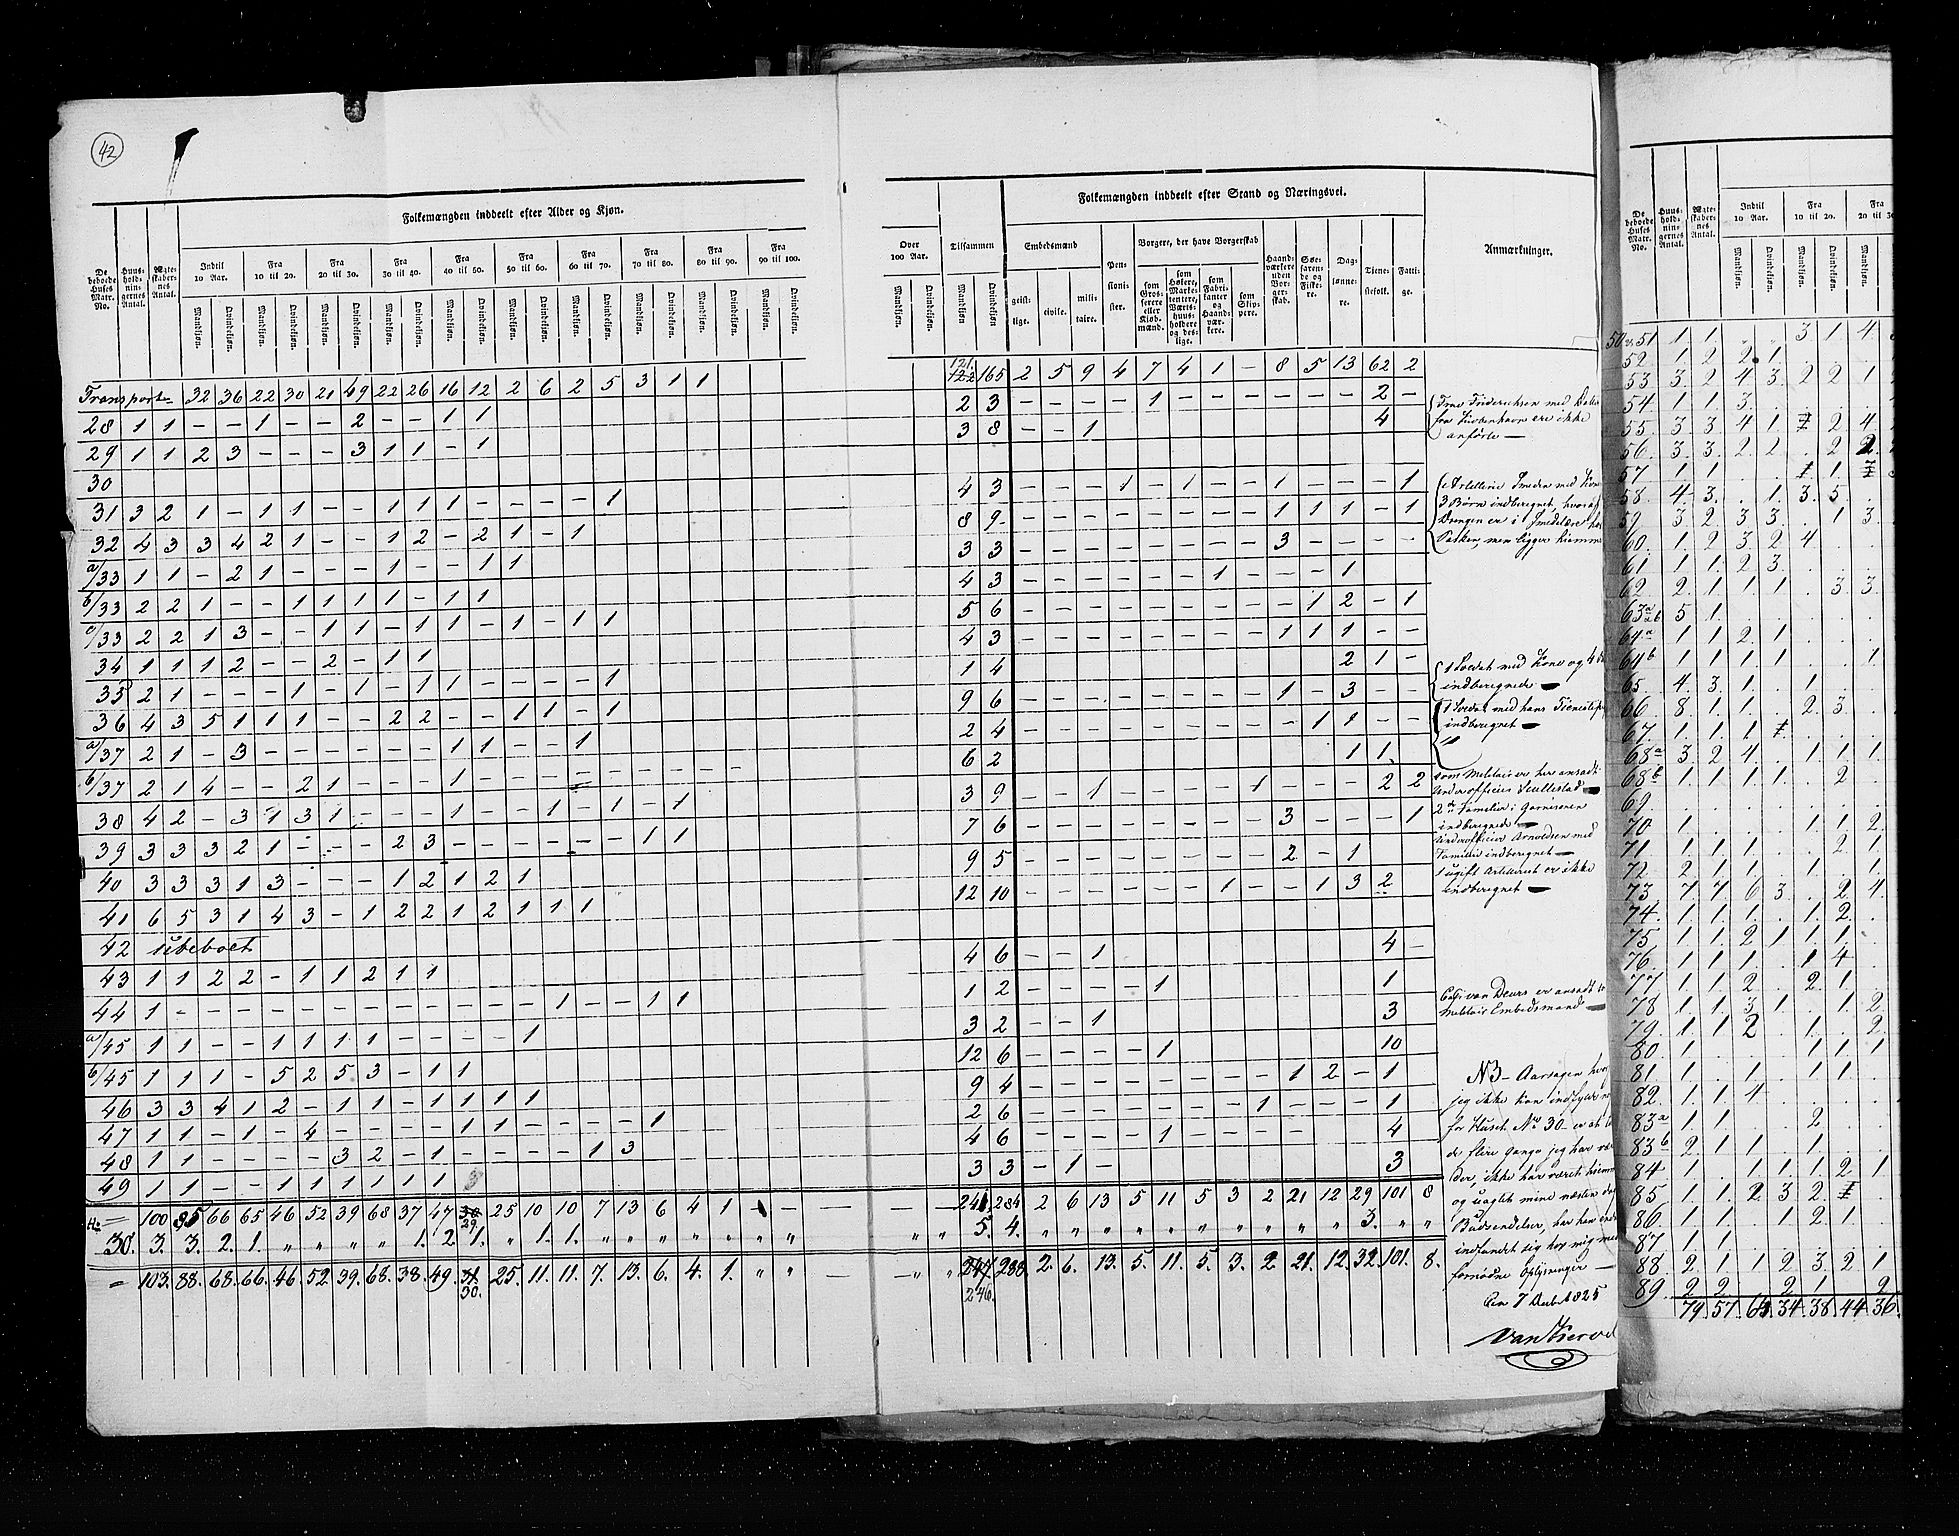 42
Folkemængden inddeelt efter Alder og Kjøn.
Folkemængden inddeelt efter Stand og Næringsvei.
De beboede Huses Matr. No.
Huusholdningernes Antal.
Ægteskabernes Antal.
Indtil 10 Aar.
Fra 10 til 20.
Fra 20 til 30.
Fra 30 til 40.
Fra 40 til 50.
Fra 50 til 60.
Fra 60 til 70.
Fra 70 til 80.
Fra 80 til 90.
Fra 90 til 100.
Over 100 Aar.
Tilsammen
Mandkjøn. Qvindekjøn.
Embedsmænd
geistlige. civile. militaire.
Pensionister.
Borgere, der have Borgerskab
som Grosserere eller Kjøbmænd.
som Høkere, Marketentere, Værtshuusholdere og deslige.
som Fabrikanter og Haandværkere.
som Skippere.
Haandværkere uden Borgerskab.
Søefarende og Fiskere.
Dagslønnere.
Tjenestefolk.
Fattige.
Anmærkninger.
Transport 32 36 22 30 21 49 22 26 16 12 2 6 2 5 3 1 1 121 122 165 2 5 9 4 7 4 1 - 8 5 13 62 2
28 1 1 - - 1 - - 2 - - 1 1 2 3 - - - - 1 - - - - - - 2 -
29 1 1 2 3 - - - 3 1 1 - 1 3 8 - - 1 4
30
31 3 2 1 - 1 1 - - 1 1 1 - - - - 1 4 3 - - - 1 - 1 - - 1 - - - 1
32 4 3 3 4 2 1 - - 1 2 - 2 1 - 1 8 9 - - - - - - - - 1 1 1 - 1
a/33 1 1 - 2 1 - - - 1 - - 1 1 3 3 - - - - - - - - 3 - - - -
b/33 2 2 1 - - 1 1 1 1 - 1 1 4 3 - - - - - - 1 - - - 1
c/33 2 2 1 3 - - 1 1 - 1 1 - 1 - 1 1 5 6 - - - - - - - - - 1 2 - 1
34 1 1 1 2 - - 2 - 1 1 4 3 - - - - - - - - 1 1 1 - -
35 2 1 - - - 1 - 1 - 1 1 - - - - 1 1 4 2 1 -
36 4 3 5 1 1 1 - - 2 2 - - 1 1 - 1 9 6 - - - - - - - - 1 - 3 - -
a/37 2 1 - 3 - - - - - - 1 1 - - 1 2 4 - - - - - - - - - 1 1 - -
b/37 2 1 4 - - 2 1 - - - 1 - - - - 6 2 1 1
38 4 2 - 3 1 3 1 - - - 1 - - 1 - 1 - 1 3 9 - - 1 - - - - 1 - - - 2 2
39 3 3 3 2 1 - - - 2 3 - - - - - - 1 1 7 6 - - - - - - - - 3 - - - 1
40 3 3 3 1 3 - - - 1 2 1 2 1 9 5 - - - - - - - - 2 - 1
41 6 5 3 1 4 3 - 1 2 2 1 2 1 1 1 12 10 - - - - - - 1 - - 1 3 2
42 ubeboet
43 1 1 2 2 - 1 1 2 1 1 4 6 - - 1 4 -
44 1 - - - - - - - - - - - - 1 - - 1 1 1 2 - - - - 1 1
a/45 1 1 - - 1 1 1 1 - - - - 1 3 2 - - 1 3
b/45 1 1 1 - 5 2 5 3 - 1 1 12 6 - - - - 1 10
46 3 3 4 1 2 - 1 1 - 1 1 1 1 9 4 - - - - - - - - - 1 2 - 1
47 1 1 - 1 - 4 - - - - 1 1 - - - - 1 2 6 - - - - - - - 1 - - - 1
48 1 1 - - - - 3 2 - 1 - - - - 1 3 4 6 - - - - 1 - - - - - - 4
49 1 1 - - 1 1 1 1 1 1 3 3 - 1 - 3
100 85 66 65 46 52 39 68 37 47 30 29 25 10 10 7 13 6 4 1 - - 241 284 2 6 13 5 11 5 3 2 21 12 29 101 8
No 30. 3. 3. 2. 1. " " " " " 1. 2. 1. " 1. 1. " " " " " " " " 5. 4. " " " " " " " " " " 3. " "
= 103. 88. 68. 66. 46. 52. 39. 68. 38. 49. 31 30. 25. 11. 11. 7. 13. 6. 4. 1. " " 247 246. 288. 2. 6. 13. 5. 11. 5. 3. 2. 21. 12. 32. 101. 8.
fra Kiøbenhavn ere ikke
anførte
Artillerie Smeden med Kone
3 Børn indberegnet, hvoraf
Drengen er i Smedelære
men ligger hiemme
1 Soldat med Kone og 4
indberegnede
1 Soldat med hans
indberegnet
som Militair er her ansadt
Underofficier
2 Familier i Garnisonen
indberegnede
Underofficier Arnoldsen med
Familie indberegnet
1 ugift Artillerist er ikke
indberegnet
van Deurs er ansadt
Militair Embedsmand
NB - Aarsagen
jeg ikke kan indfylde
for Huset No 30 er at
de flere gange jeg har
der, ikke har været hiemme
og uagtet mine næsten
Budsendelser, har han
indfundet sig hos mig med
fornødne Oplysninger
den 7 Decb 1825
De beboede Huses Matr. No.
Huusholdningernes Antal.
Ægteskabernes Antal.
Indtil 10 Aar.
Fra 10 til 20.
Fra 20 til 30
Mandkjøn. Qvindekjøn. Mandkjøn. Qvindekjøn. Mandkjøn.
50 & 51 1. 1. . . 3 1 4
52. 1. 2 2. 1.
53 3. 2 4 3. 2 2 1
54. 1 1 3.
55. 3 3 4 1 2 4
56. 3 3. 2 2 . 2 2.
57 1. 1. . 1.
58. 4 3. . 1. 3. 5.
59. 3 2 3 3. . 1 3
60. 1. 2. 3. 2 4
61 1 1 2 3.
62. 2. 1. 1. 1. . 3 3.
63 a & b 5 1.
64a 1 1 2 1
64b 1. 1. 1. 1. 1
65. 4. 3. 1. . 1.
66. 8 1. 1. . 2 3.
67. 1. 1. 1
68a 3. 2. 4. . 1. 1. 1.
68b 1. 1. 1. 1. . 2
69
70. 1. . . . 1. 1. 2.
71. 1. 1. 1. . . 2 1.
72. 2. 1 1. . 1. . 1.
73. 7. 7. 6 3. . 2 4.
74. 1. 1. 1. . 1. 2.
75. 1. 1. 2 1. 1. 1.
76. 1. 1. 1. . 1 4
77. 1. 1. 2 . 2. 1.
78. 1. 1. 3. 1 . 1. 2.
79. 1. 1 2 . 1. . 2.
80. 1. . . . 1. 1. 1
81. 1. . 1. . 1. 1.
82. 1. 1. 4
83a 1. 1. . . 2
83b 2. 1 1. . 1.
84. 1. . 1. 1. 1. 2. 1
85. 1. 1. 2. 3 2.
86. 1. 1. . 1. 2 1.
87. 1. 1.
88. 2. 1. 1 2 3. 2. 1
89. 2 2. . 2 1. . 2
79. 57. 64. 34. 38. 44. 36.